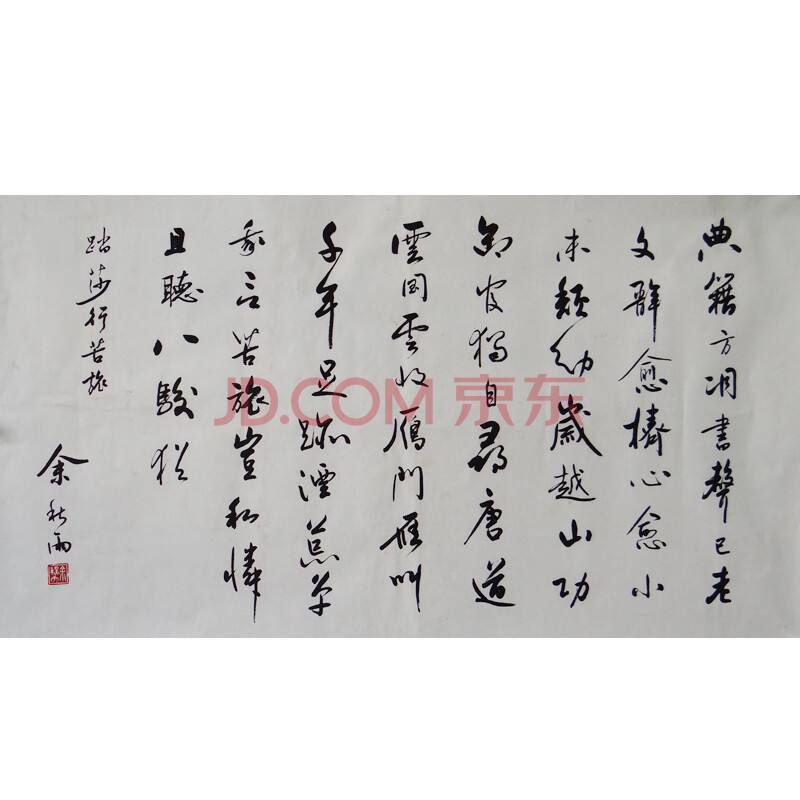 典籍方凋書聲已老
文辭愈擠心愈小
未頹幼歲越山功
卸官獨自尋唐道
雲岡雲收雁門雁叫
千年足跡湮荒草
我言苦旅豈私憐
且聽八駿
踏莎行苦旅
余秋雨
JD.COM 京东